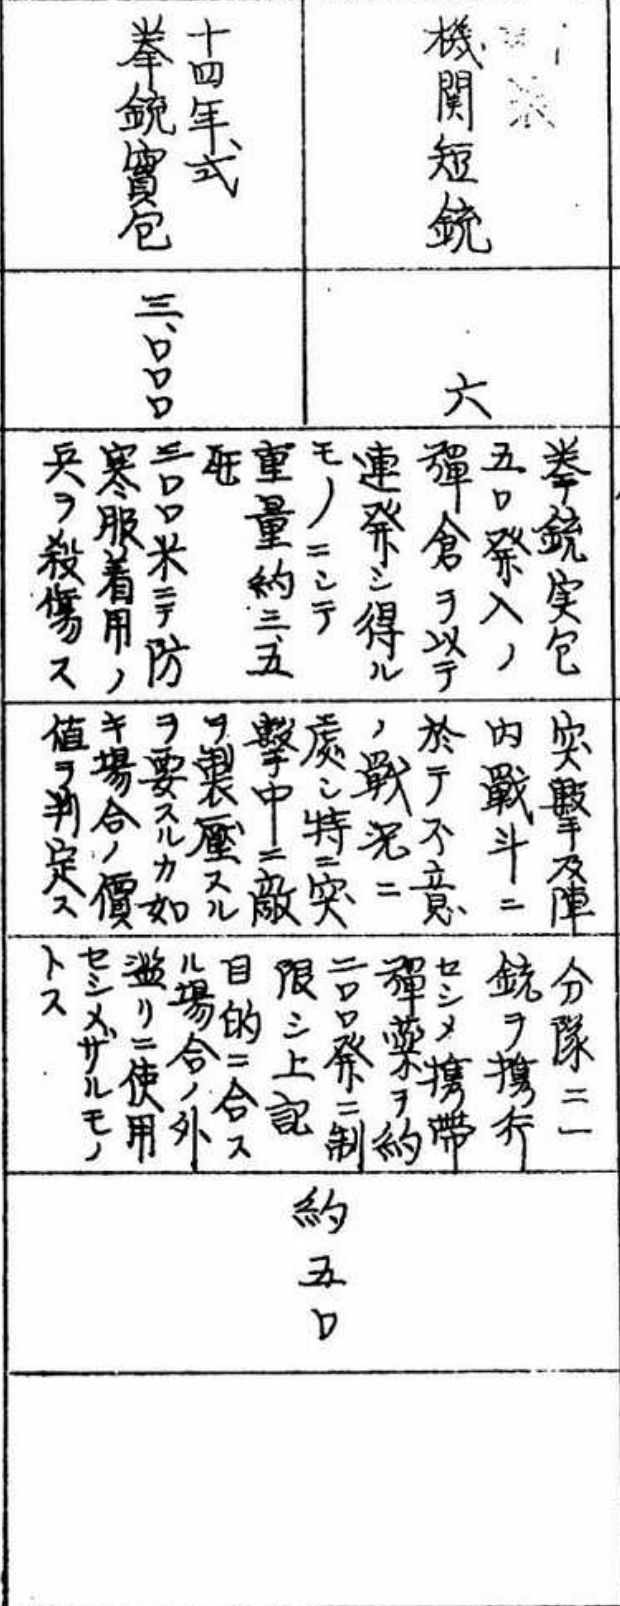 機関短銃
十四年式
拳銃實包
六
三、〇〇〇
拳銃実包
五〇発入ノ
彈倉ヲ以テ
連発シ得ル
モノニシテ
重量約三、五
瓩
三〇〇米ニテ防
寒服着用ノ
兵ヲ殺傷ス
突撃及陣
内戰斗ニ
於テ不意
ノ戰況ニ
處シ特ニ突
撃中ニ敵
ヲ製壓スル
ヲ要スルカ如
キ場合ノ價
値ヲ判定ス
分隊ニ一
銃ヲ携行
セシメ携帶
彈藥ヲ約
二〇〇発ニ制
限シ上記
目的ニ合ス
ル場合ノ外
濫リニ使用
セシメザルモノ
トス
約五〇